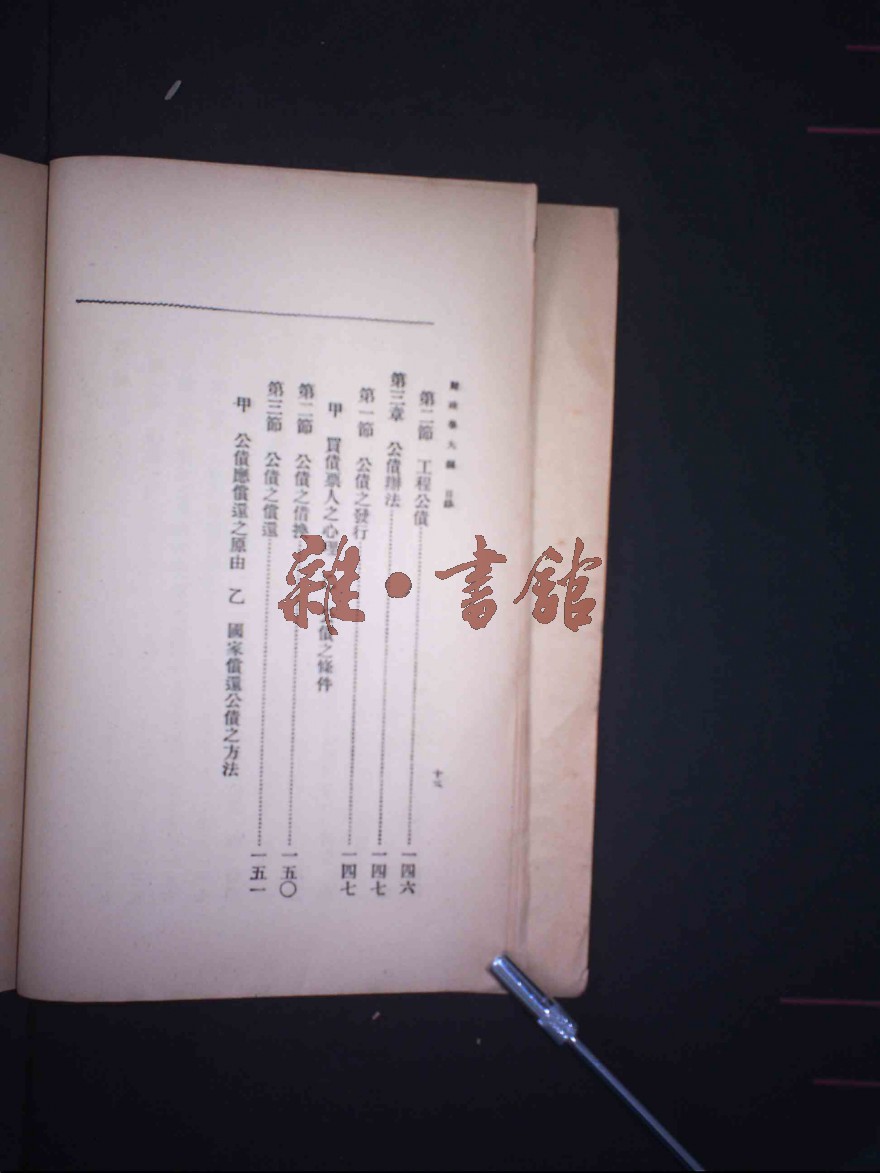 目錄
第二節　工程公債……一四六
第三章　公債辦法……一四七
第一節　公債之發行……一四七
甲　買債票人之心理　公債之條件
第二節　公債之借換……一五〇
第三節　公債之償還……一五一
甲　公債應償還之原由　乙　國家償還公債之方法
雜·書館